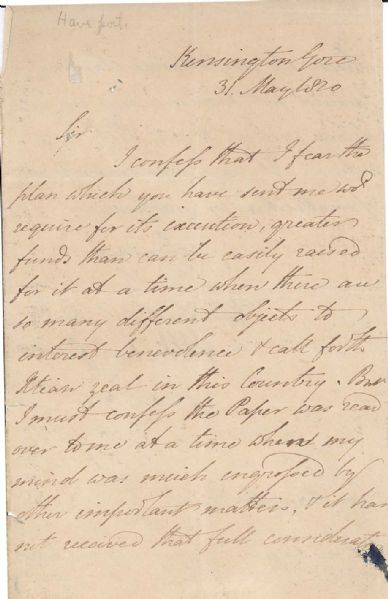 Have port.
Kensington Gore
31. May 1820
Sir
I confess that I fear the
plan which you have sent me wod
require for its execution, greater
funds than can be easily raised
for it at a time when there are
so many different objects to
interest benevolence & call forth
Xtean zeal in this Country. But
I must confess the Paper was read
over to me at a time when my
mind was much engrossed by
other important matters, & it has
not received that full considerat